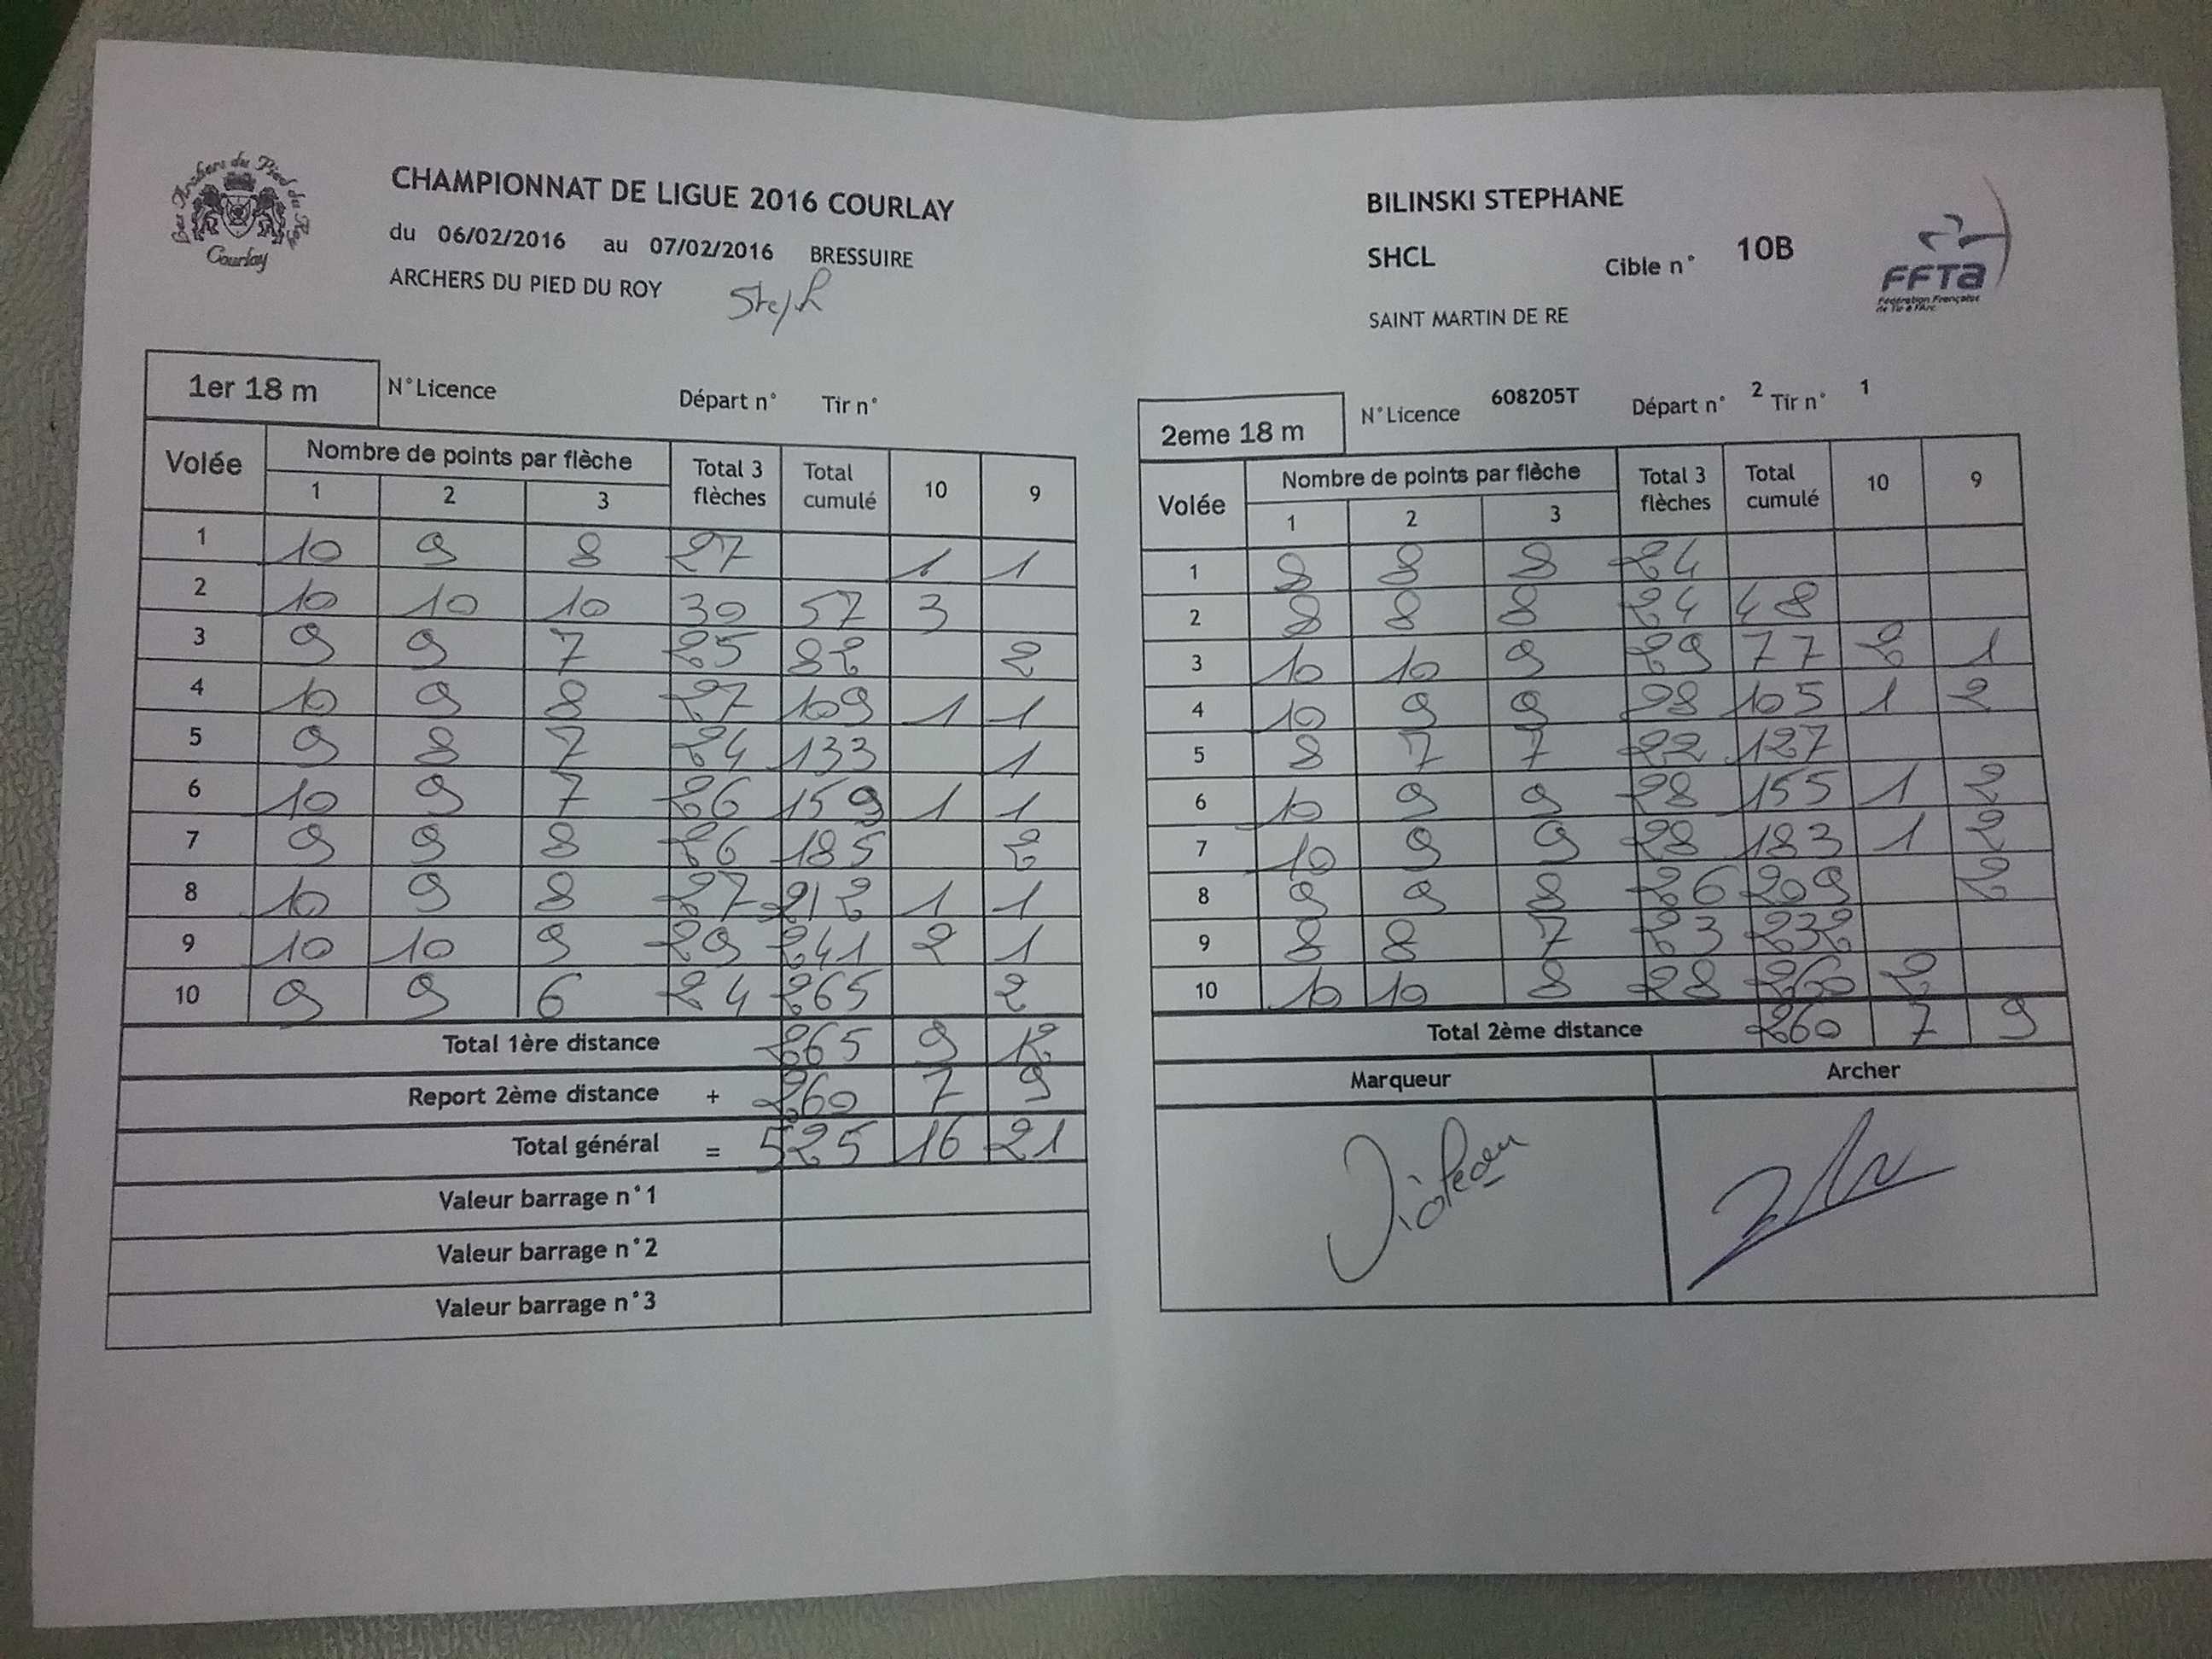 Les Archers du Pied du Roy
Courlay
CHAMPIONNAT DE LIGUE 2016 COURLAY
du 06/02/2016 au 07/02/2016 BRESSUIRE
ARCHERS DU PIED DU ROY
Steph
BILINSKI STEPHANE
SHCL Cible n° 10B
SAINT MARTIN DE RE
FFTa
Fédération Française
de Tir à l'Arc
1er 18 m N°Licence Départ n° Tir n°
Volée Nombre de points par flèche Total 3 flèches Total cumulé 10 9
1 2 3
1 10 9 8 27 1 1
2 10 10 10 30 57 3
3 9 9 7 25 82 2
4 10 9 8 27 109 1 1
5 9 8 7 24 133 1
6 10 9 7 26 159 1 1
7 9 9 8 26 185 2
8 10 9 8 27 212 1 1
9 10 10 9 29 241 2 1
10 9 9 6 24 265 2
Total 1ère distance 265 9 12
Report 2ème distance + 260 7 9
Total général = 525 16 21
Valeur barrage n°1
Valeur barrage n°2
Valeur barrage n°3
2eme 18 m N°Licence 608205T Départ n° 2 Tir n° 1
Volée Nombre de points par flèche Total 3 flèches Total cumulé 10 9
1 2 3
1 8 8 8 24
2 8 8 8 24 48
3 10 10 9 29 77 2 1
4 10 9 9 28 105 1 2
5 8 7 7 22 127
6 10 9 9 28 155 1 2
7 10 9 9 28 183 1 2
8 9 9 8 26 209 2
9 8 8 7 23 232
10 10 10 8 28 260 2
Total 2ème distance 260 7 9
Marqueur Archer